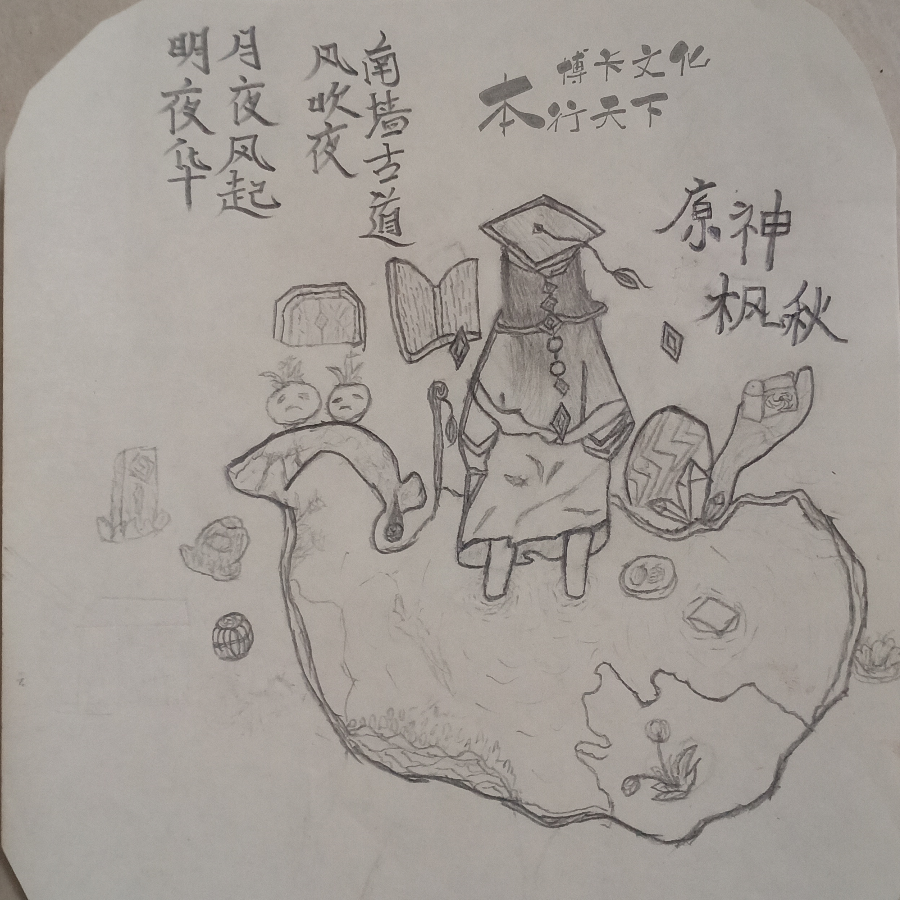 月夜风起
明夜华
南墙古道
风吹夜
博卡文化
本行天下
原神
枫秋